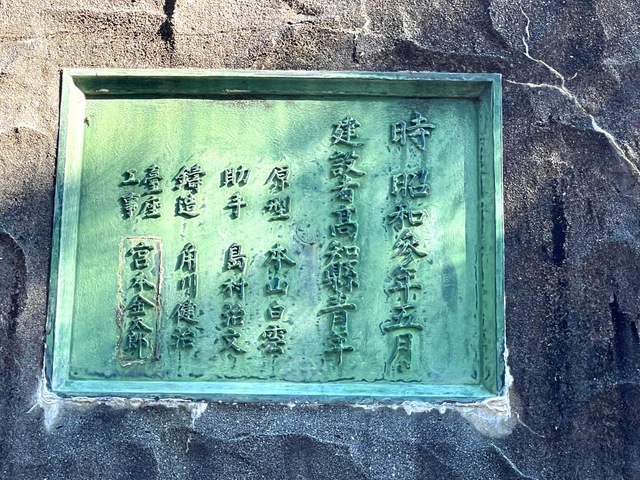 時昭和參年五月
建設者高知縣青年
原型 本山白雲
助手 島村治文
鑄造 角川健治
臺座工事 宮本金太郎